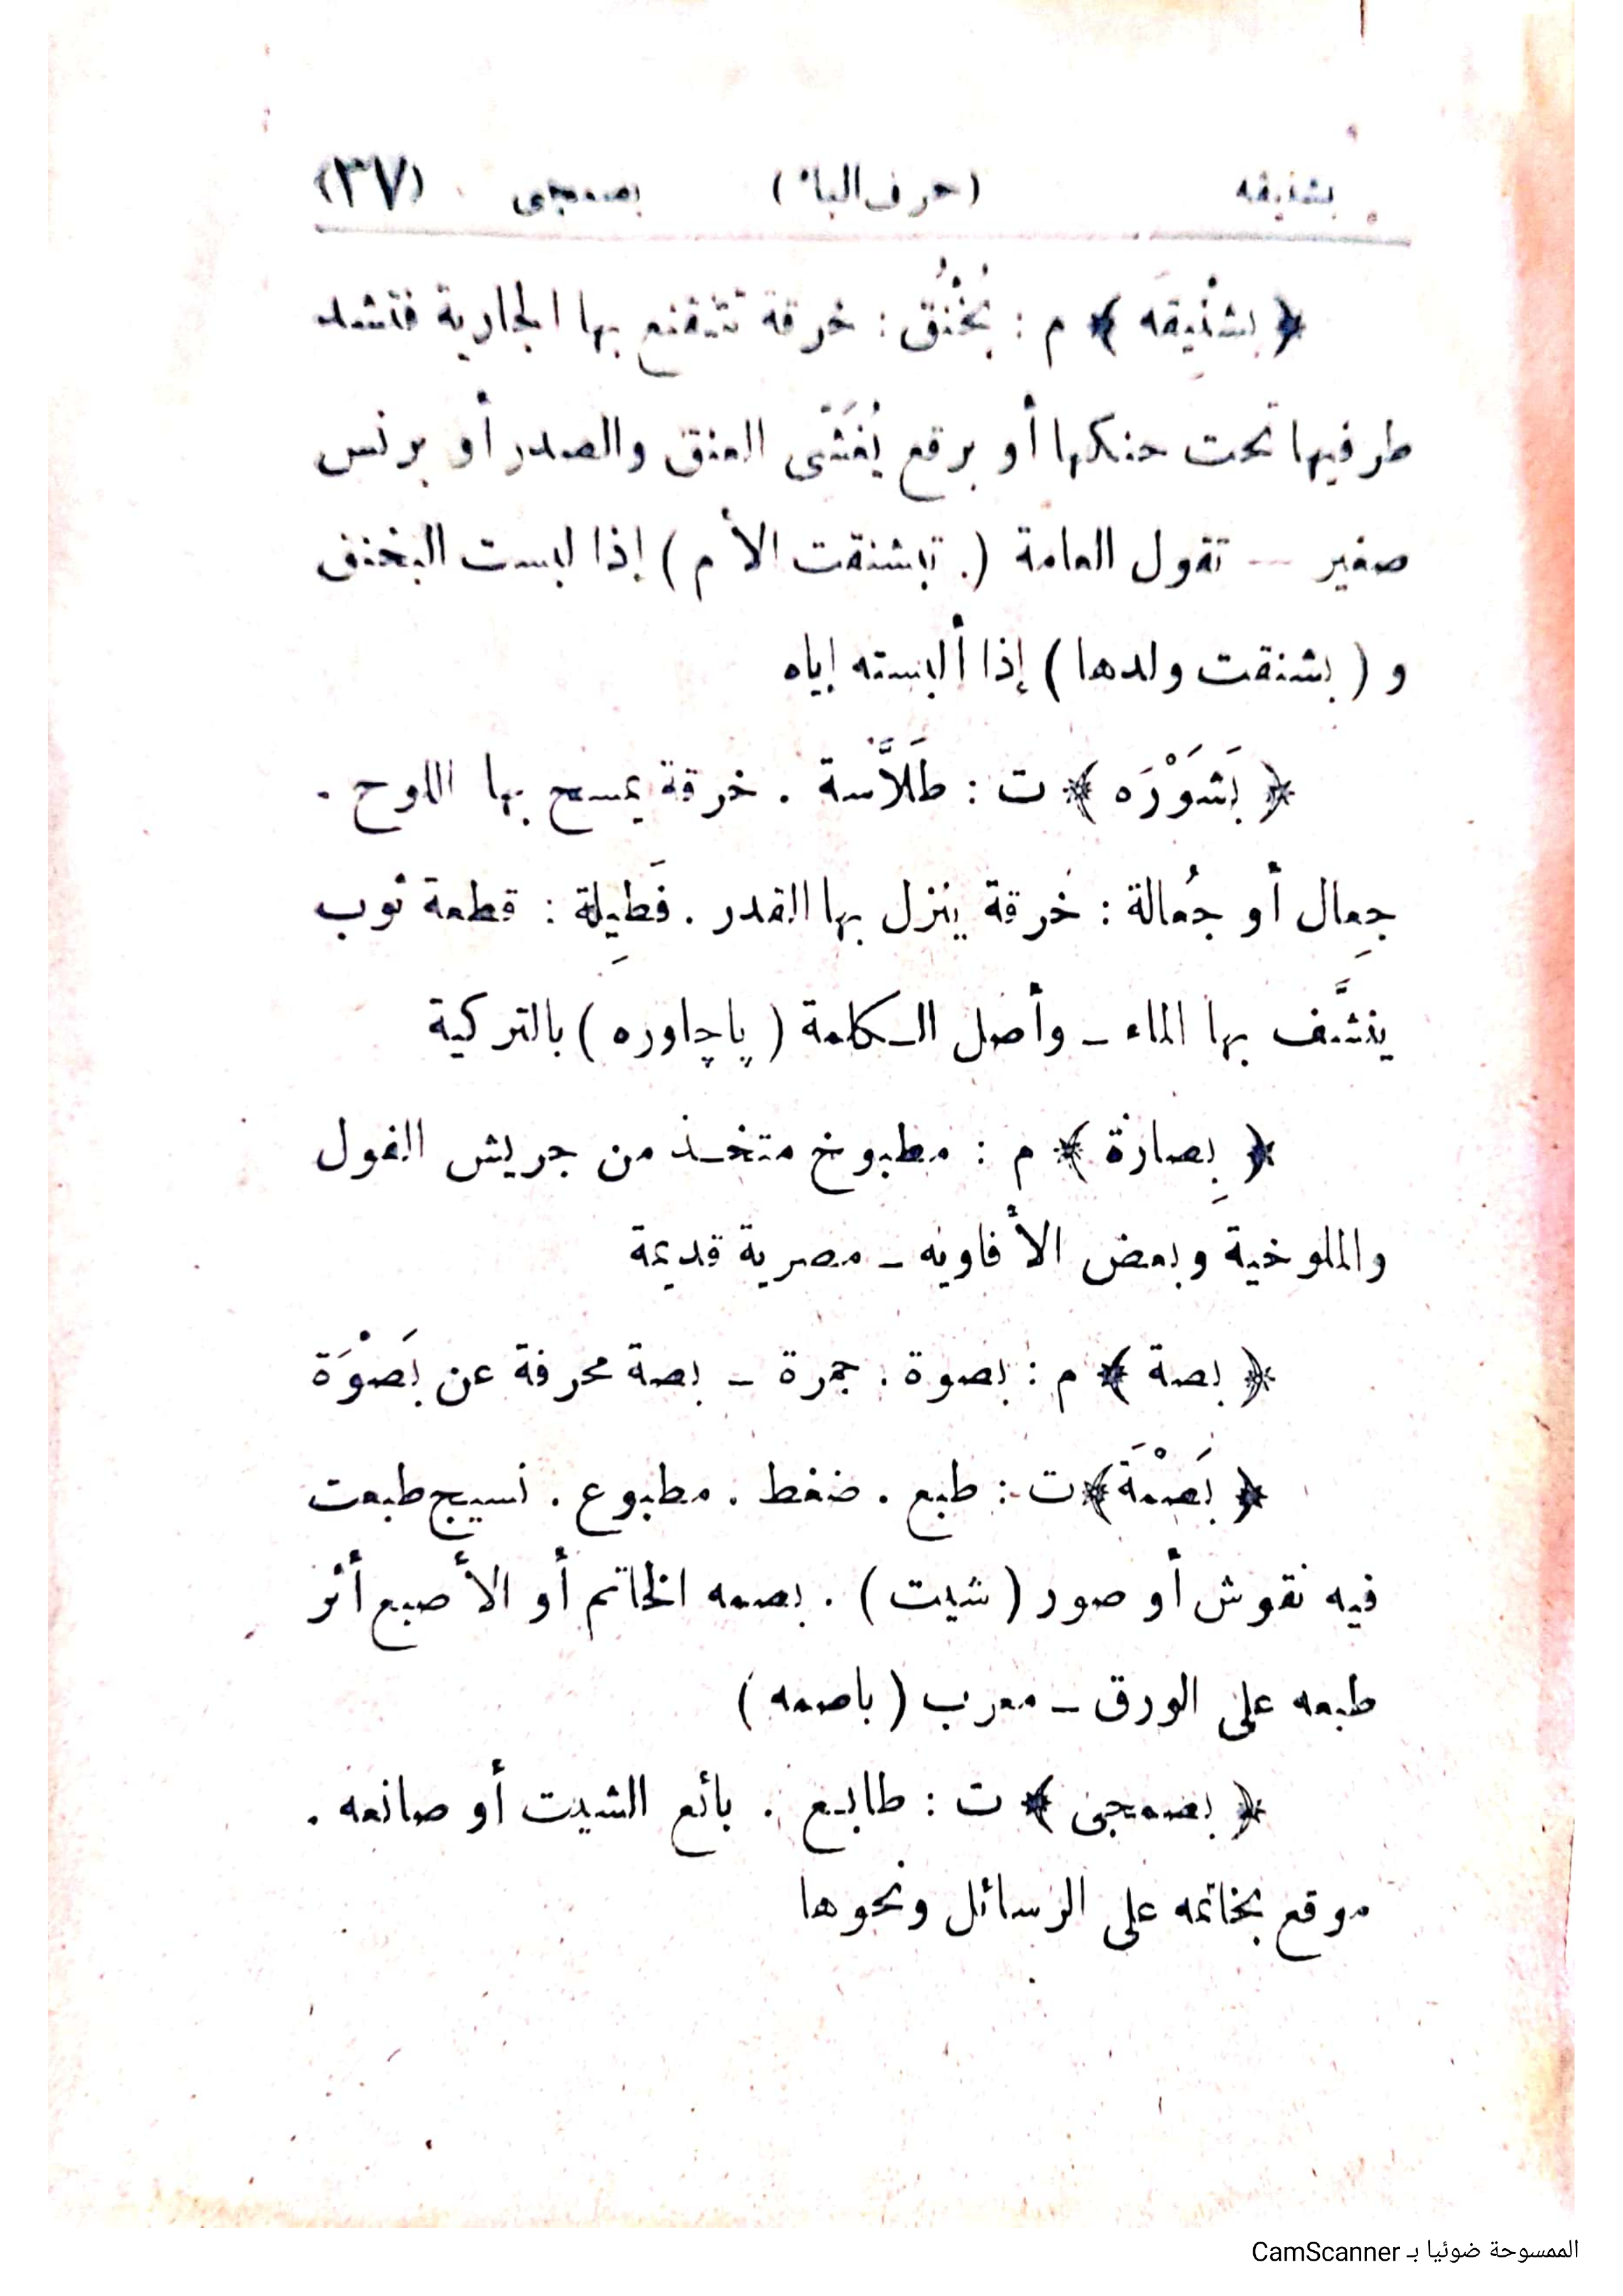 بشنيقه (حرف الباء) بصمجى (٣٧)
﴿ بشْنِيقَه ﴾ م : بُخْنُق : خرقة تتقنع بها الجارية فتشد
طرفيها تحت حنكها أو برقع يُغَشّى العنق والصدر أو برنس
صغير — تقول العامة ( تبشنقت الأم ) إذا لبست البخنق
و ( بشنقت ولدها ) إذا ألبسته إياه
﴿ بَشَوْرَه ﴾ ت : طَلَّاسة . خرقة يمسح بها اللوح .
جِعال أو جُعالة : خرقة ينزل بها القدر . فَطِيلة : قطعة ثوب
ينشَّف بها الماء ـ وأصل الـكلمة ( پاچاوره ) بالتركية
﴿ بِصارة ﴾ م : مطبوخ متخـذ من جريش الفول
والملوخية وبعض الأفاويه ـ مصرية قديمة
﴿ بصة ﴾ م : بصوة . جمرة ـ بصة محرفة عن بَصْوَة
﴿ بَصْمَة ﴾ ت : طبع . ضغط . مطبوع . نسيج طبعت
فيه نقوش أو صور ( شيت ) . بصمه الخاتم أو الأصبع أثر
طبعه على الورق ـ معرب ( باصمه )
﴿ بصمجى ﴾ ت : طابـع . بائع الشيت أو صانعه .
موقع بخاتمه على الرسائل ونحوها
الممسوحة ضوئيا بـ CamScanner